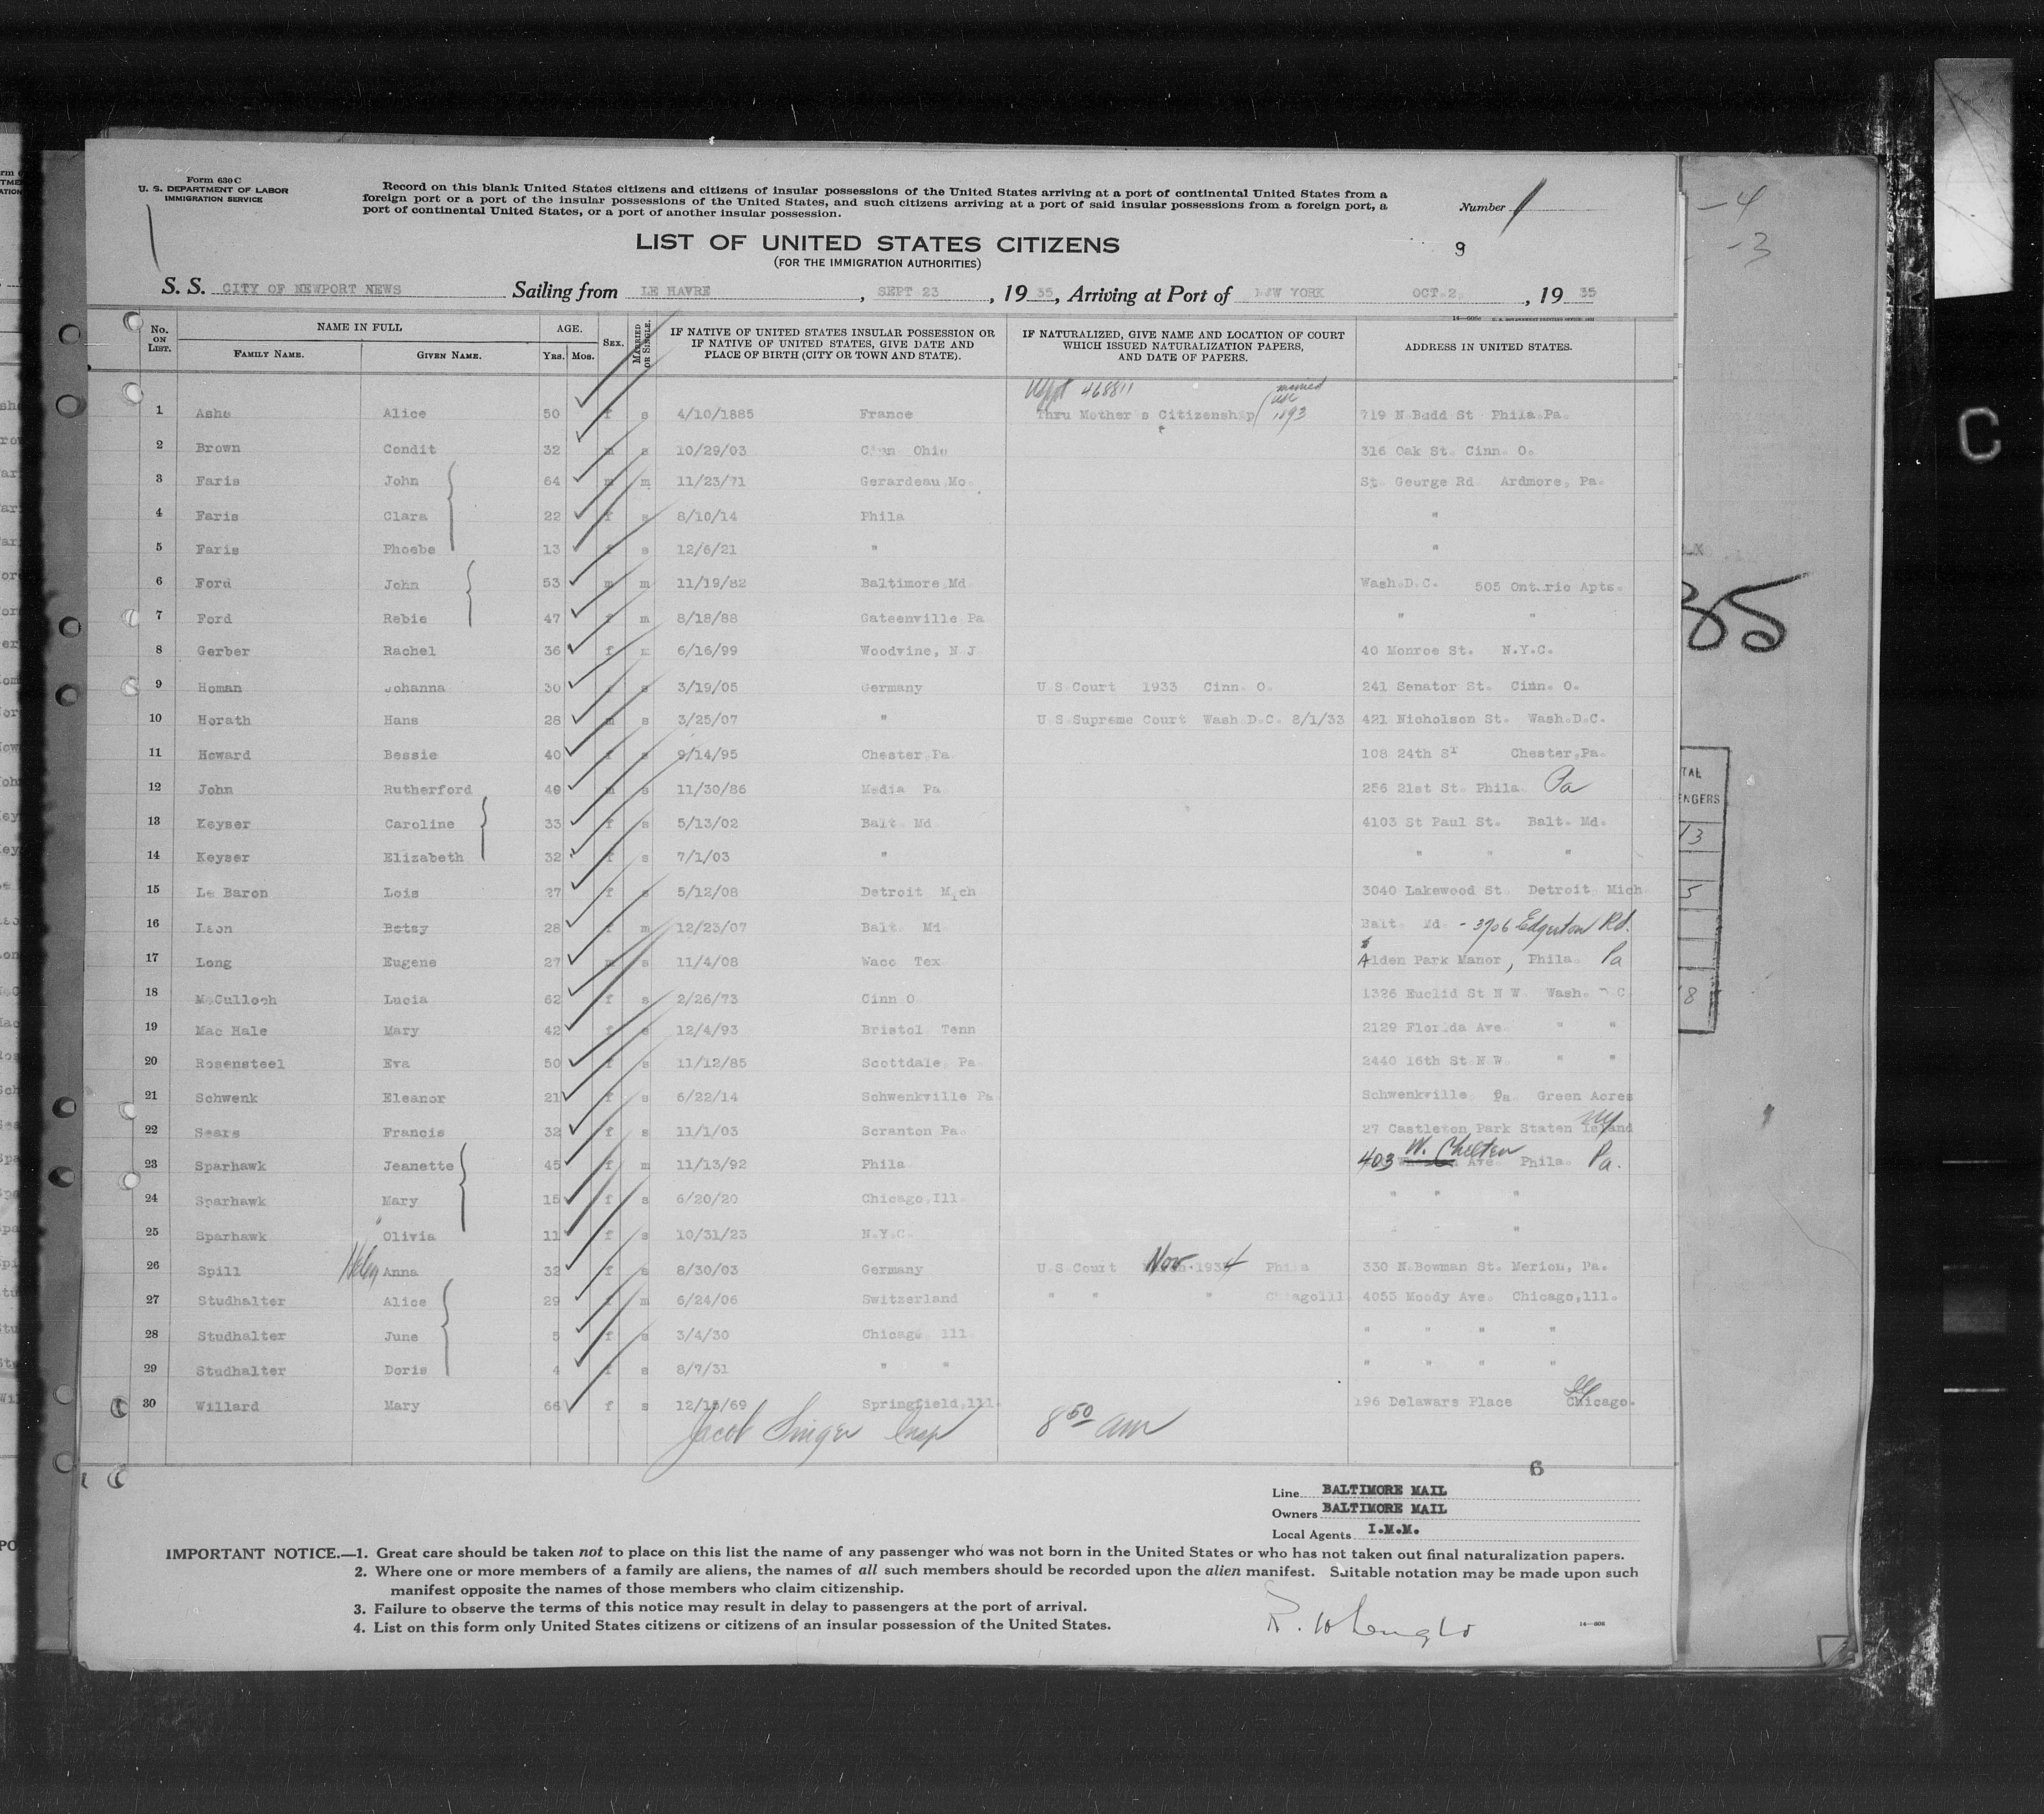 Form 630 C
U. S. DEPARTMENT OF LABOR
IMMIGRATION SERVICE
Record on this blank United States citizens and citizens of insular possessions of the United States arriving at a port of continental United States from a
foreign port or a port of the insular possessions of the United States, and such citizens arriving at a port of said insular possessions from a foreign port, a
port of continental United States, or a port of another insular possession.
Number 1
LIST OF UNITED STATES CITIZENS
(FOR THE IMMIGRATION AUTHORITIES)
9
S. S. CITY OF NEWPORT NEWS Sailing from LE HAVRE, SEPT 23, 1935, Arriving at Port of NEW YORK OCT 2, 1935
No. ON LIST. NAME IN FULL FAMILY NAME. GIVEN NAME. AGE. Yrs. Mos. SEX. MARRIED OR SINGLE. IF NATIVE OF UNITED STATES INSULAR POSSESSION OR IF NATIVE OF UNITED STATES, GIVE DATE AND PLACE OF BIRTH (CITY OR TOWN AND STATE). IF NATURALIZED, GIVE NAME AND LOCATION OF COURT WHICH ISSUED NATURALIZATION PAPERS, AND DATE OF PAPERS. ADDRESS IN UNITED STATES.
468811 married
1 Ashe Alice 50 f s 4/10/1885 France Thru Mother's Citizenship 1893 719 N Budd St Phila Pa.
2 Brown Condit 32 m s 10/29/03 Cinn Ohio 316 Oak St. Cinn. O.
3 Faris John 64 m m 11/23/71 Gerardeau Mo. St. George Rd Ardmore, Pa.
4 Faris Clara 22 f s 8/10/14 Phila "
5 Faris Phoebe 13 f s 12/6/21 " "
6 Ford John 53 m m 11/19/82 Baltimore Md Wash D.C. 505 Ontario Apts.
7 Ford Rebie 47 f m 8/18/88 Gateenville Pa " "
8 Gerber Rachel 36 f m 6/16/99 Woodvine, N J 40 Monroe St. N.Y.C.
9 Homan Johanna 30 f s 3/19/05 Germany U S Court 1933 Cinn. O. 241 Senator St. Cinn. O.
10 Horath Hans 28 m s 3/25/07 " U S Supreme Court Wash D.C. 8/1/33 421 Nicholson St. Wash D.C.
11 Howard Bessie 40 f s 9/14/95 Chester Pa 108 24th St Chester, Pa.
12 John Rutherford 49 m s 11/30/86 Media Pa 256 21st St. Phila Pa
13 Keyser Caroline 33 f s 5/13/02 Balt Md 4103 St Paul St. Balt. Md.
14 Keyser Elizabeth 32 f s 7/1/03 " " " "
15 Le Baron Lois 27 f s 5/12/08 Detroit Mich 3040 Lakewood St Detroit Mich
16 Leon Betsy 28 f m 12/23/07 Balt Md Balt Md - 3706 Edgerton Rd.
17 Long Eugene 27 m s 11/4/08 Waco Tex Alden Park Manor, Phila Pa
18 McCulloch Lucia 62 f s 2/26/73 Cinn O 1326 Euclid St N W Wash. D C
19 Mac Hale Mary 42 f s 12/4/93 Bristol Tenn 2129 Florida Ave " "
20 Rosensteel Eva 50 f s 11/12/85 Scottdale, Pa 2440 16th St N W " "
21 Schwenk Eleanor 21 f s 6/22/14 Schwenkville Pa Schwenkville Pa Green Acres
22 Sears Francis 32 f s 11/1/03 Scranton Pa. 27 Castleton Park Staten Island NY
23 Sparhawk Jeanette 45 f m 11/13/92 Phila 403 W. Chelten Ave. Phila. Pa.
24 Sparhawk Mary 15 f s 6/20/20 Chicago, Ill. " " "
25 Sparhawk Olivia 11 f s 10/31/23 N.Y.C. " " "
26 Spill Helen Anna 32 f s 8/30/03 Germany U S Court Nov. 1934 Phila 330 N Bowman St. Merion, Pa.
27 Studhalter Alice 29 f m 6/24/06 Switzerland " " " Chicago Ill 4053 Moody Ave. Chicago, Ill.
28 Studhalter June 5 f s 3/4/30 Chicago Ill " " " "
29 Studhalter Doris 4 f s 8/7/31 " " " " " "
30 Willard Mary 66 f s 12/15/69 Springfield, Ill. 196 Delaware Place Chicago. Ill
Jacob Singer Insp 8 50 am
6
Line BALTIMORE MAIL
Owners BALTIMORE MAIL
Local Agents I.M.M.
IMPORTANT NOTICE.—1. Great care should be taken not to place on this list the name of any passenger who was not born in the United States or who has not taken out final naturalization papers.
2. Where one or more members of a family are aliens, the names of all such members should be recorded upon the alien manifest. Suitable notation may be made upon such
manifest opposite the names of those members who claim citizenship.
3. Failure to observe the terms of this notice may result in delay to passengers at the port of arrival.
4. List on this form only United States citizens or citizens of an insular possession of the United States.
14—606
-4
-3
35
TAL
ENGERS
13
5
18
C